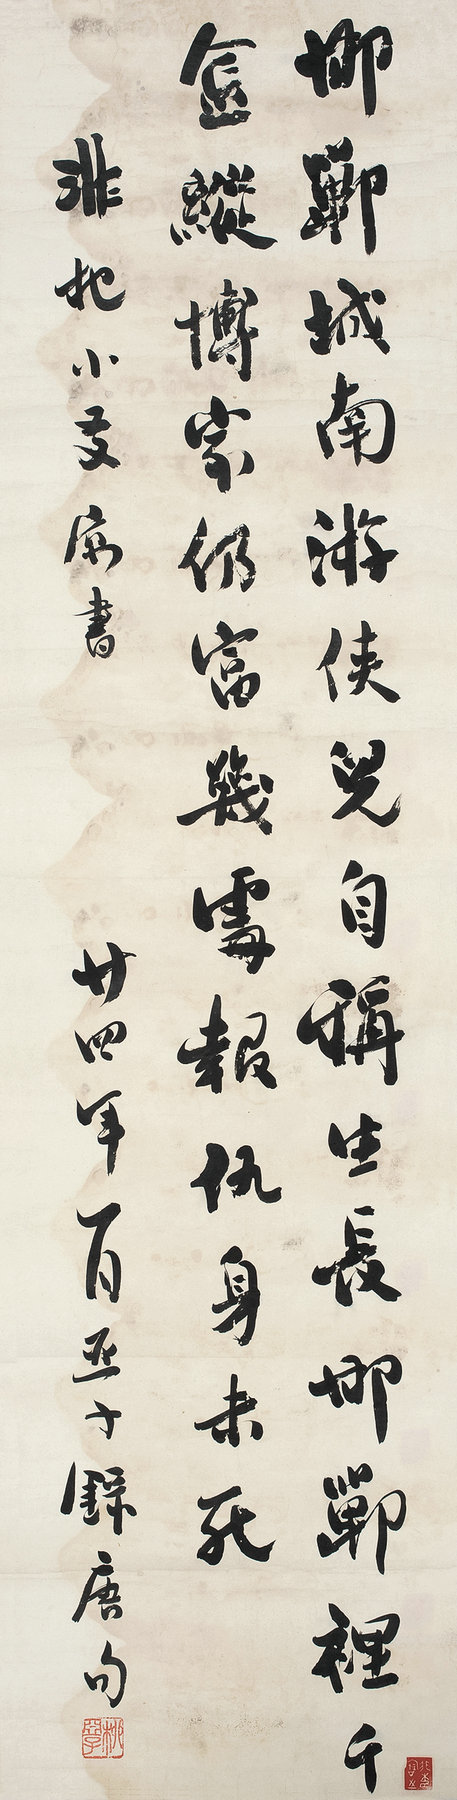 邯鄲城南游俠兒自稱生長邯鄲裡千
金縱博家仍富幾處報仇身未死
小友屬書 廿四年一月亞子錄唐句